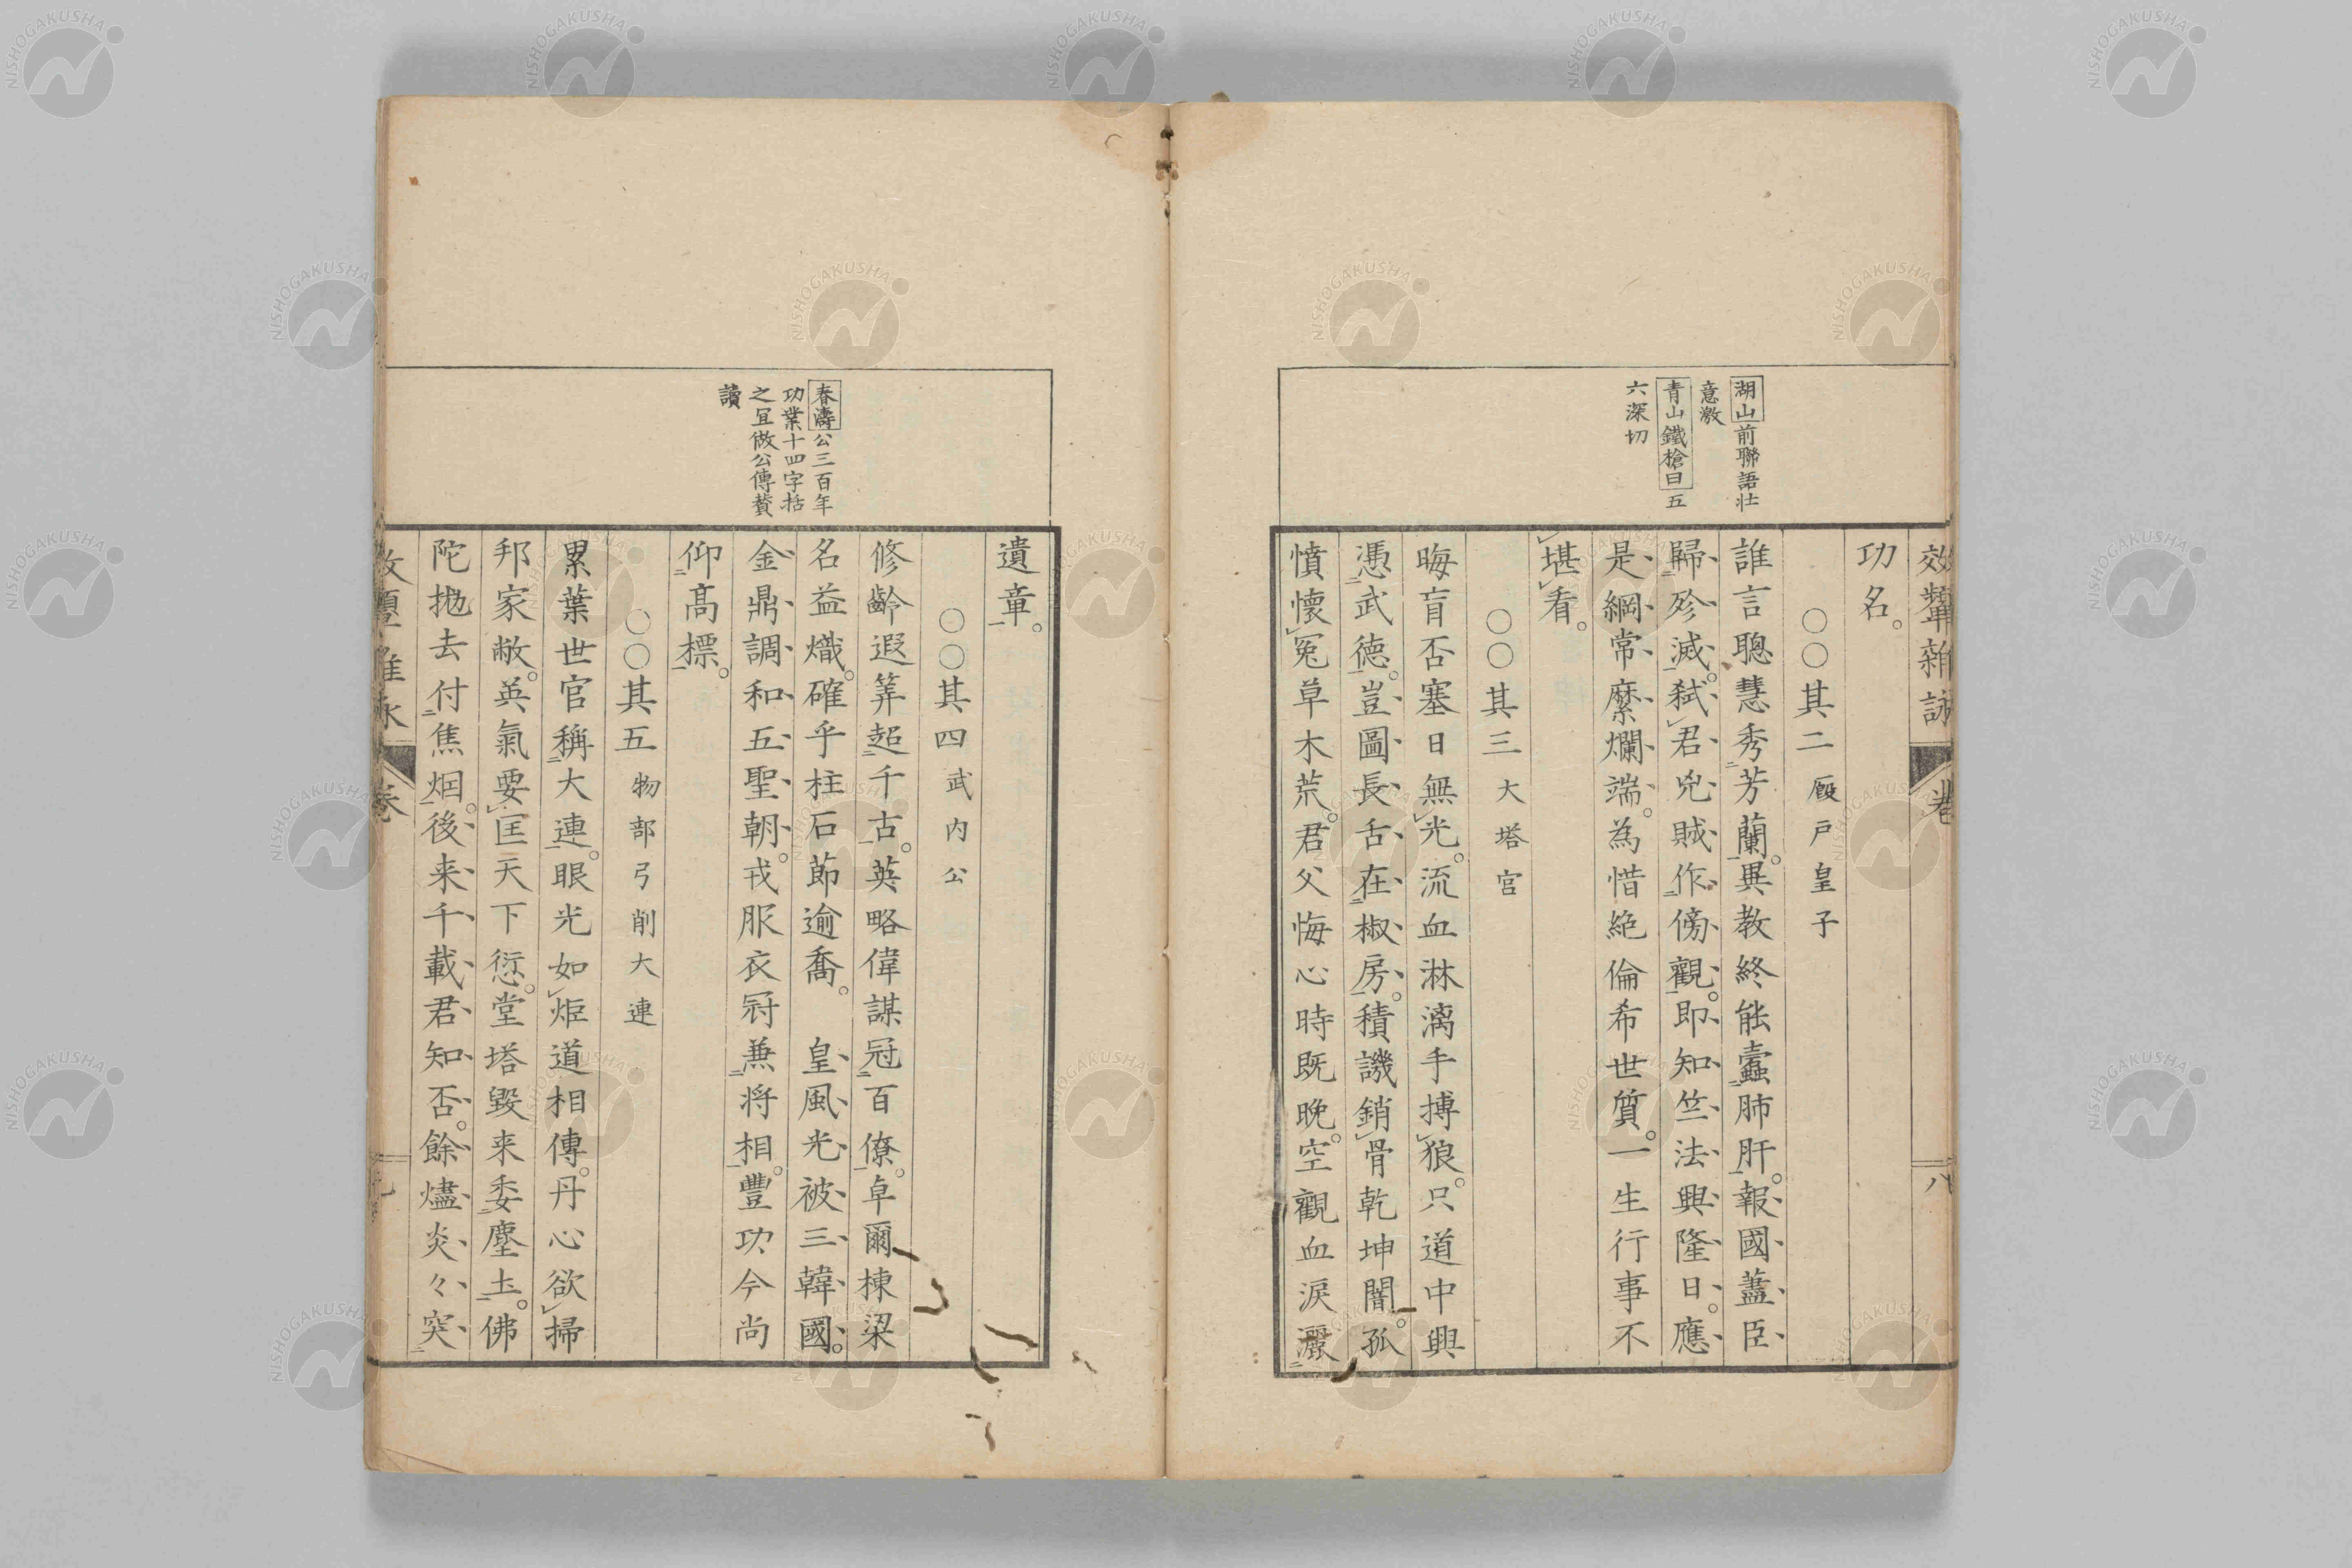 效顰雜詠
卷
八
功名。
〇〇其二 厩戸皇子
誰言聰慧秀芳蘭。異教終能蠹肺肝。報國藎臣
歸殄滅。弑君兇賊作傍觀。即知竺法興隆日。應
是綱常縻爛端。為惜絶倫希世質。一生行事不
堪看。
〇〇其三 大塔宮
晦盲否塞日無光。流血淋漓手搏狼。只道中興
憑武德。豈圖長舌在椒房。積譏銷骨乾坤闇。孤
憤懷冤草木荒。君父悔心時既晩。空觀血淚灑
湖山前聯語壮
意激
青山鐵槍曰五
六深切
遺章。
〇〇其四 武内公
修齡遐筭超千古。英略偉謀冠百僚。卓爾棟梁
名益熾。確乎柱石節逾喬。 皇風光被三韓國。
金鼎調和五聖朝。戎服衣冠兼将相。豐功今尚
仰高標。
〇〇其五 物部弓削大連
累葉世官稱大連。眼光如炬道相傳。丹心欲掃
邦家敝。英氣要匡天下愆。堂塔毀来委塵土。佛
陀抛去付焦烟。後来千載君知否。餘燼炎々突
春濤公三百年
功業十四字括
之冝做公傳賛
讀
卷